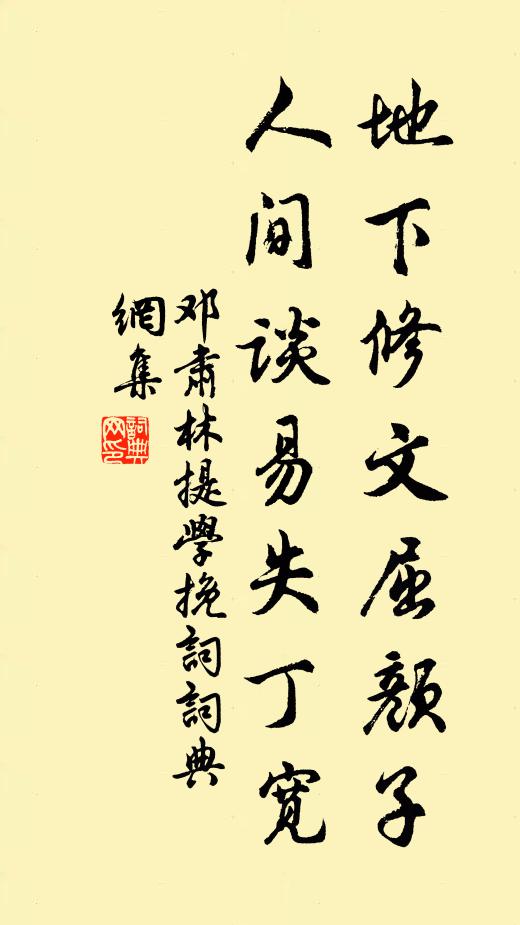 地下修文屈颜子
人间谈易失丁宽
邓肃林提学挽詞詞典
網集
詞典
网印